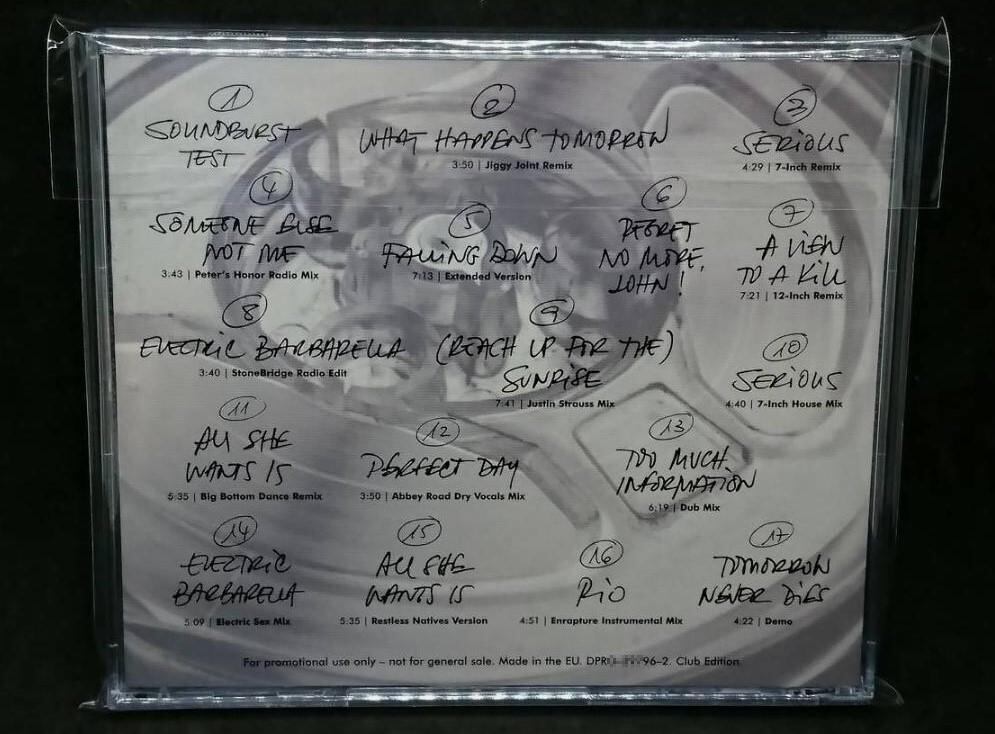 1
SOUNDBURST
TEST
2
WHAT HAPPENS TOMORROW
3:50 | Jiggy Joint Remix
3
SERIOUS
4:29 | 7-Inch Remix
4
SOMEONE ELSE
NOT ME
3:43 | Peter's Honor Radio Mix
5
FALLING DOWN
7:13 | Extended Version
6
REGRET
NO MORE,
JOHN!
7
A VIEW
TO A KILL
7:21 | 12-Inch Remix
8
ELECTRIC BARBARELLA
3:40 | StoneBridge Radio Edit
9
(REACH UP FOR THE)
SUNRISE
7:41 | Justin Strauss Mix
10
SERIOUS
4:40 | 7-Inch House Mix
11
ALL SHE
WANTS IS
5:35 | Big Bottom Dance Remix
12
PERFECT DAY
3:50 | Abbey Road Dry Vocals Mix
13
TOO MUCH
INFORMATION
6:19 | Dub Mix
14
ELECTRIC
BARBARELLA
5:09 | Electric Sex Mix
15
ALL SHE
WANTS IS
5:35 | Restless Natives Version
16
RIO
4:51 | Enrapture Instrumental Mix
17
TOMORROW
NEVER DIES
4:22 | Demo
For promotional use only – not for general sale. Made in the EU. 96–2. Club Edition.